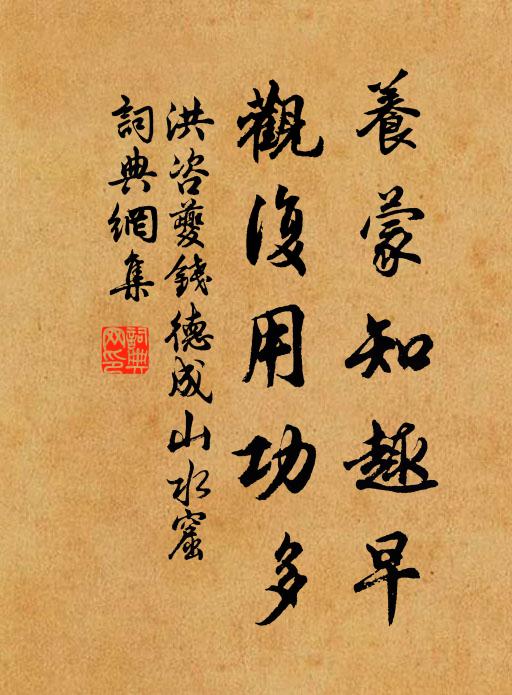 養蒙知趣早
觀復用功多
洪咨夔錢德成山水窟
詞典網集
詞典網印